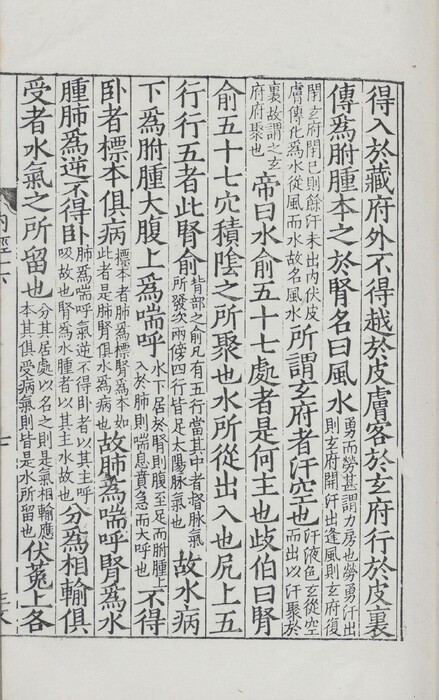 得入於藏府外不得越於皮膚客於玄府行於皮裏
傳爲胕腫本之於腎名曰風水
勇而勞甚謂力房也勞勇汗出
則玄府開汗出逢風則玄府復
閉玄府閉已則餘汗未出內伏皮
膚傳化爲水從風而水故名風水
所謂玄府者汗空也
汗液色玄從空
而出以汗聚於
裏故謂之玄
府府聚也
帝曰水俞五十七處者是何主也歧伯曰腎
俞五十七穴積陰之所聚也水所從出入也尻上五
行行五者此腎俞
背部之俞凡有五行當其中者督脉氣
所發次兩傍四行皆足太陽脉氣也
故水病
下爲胕腫大腹上爲喘呼
水下居於腎則腹至足而胕腫上
入於肺則喘息賁急而大呼也
不得
卧者標本俱病
標本者肺爲標腎爲本如
此者是肺腎俱水爲病也
故肺爲喘呼腎爲水
腫肺爲逆不得卧
肺爲喘呼氣逆不得卧者以其主呼
吸故也腎爲水腫者以其主水故也
分爲相輸俱
受者水氣之所留也
分其居處以名之則是氣相輸應
本其俱受病氣則皆是水所留也
伏菟上各